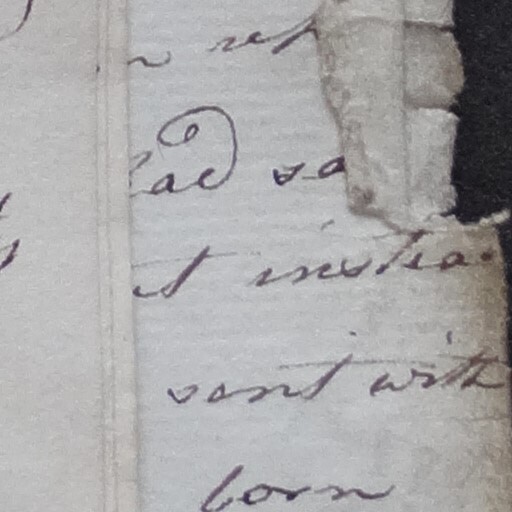 had sa
t instea
sent with
born